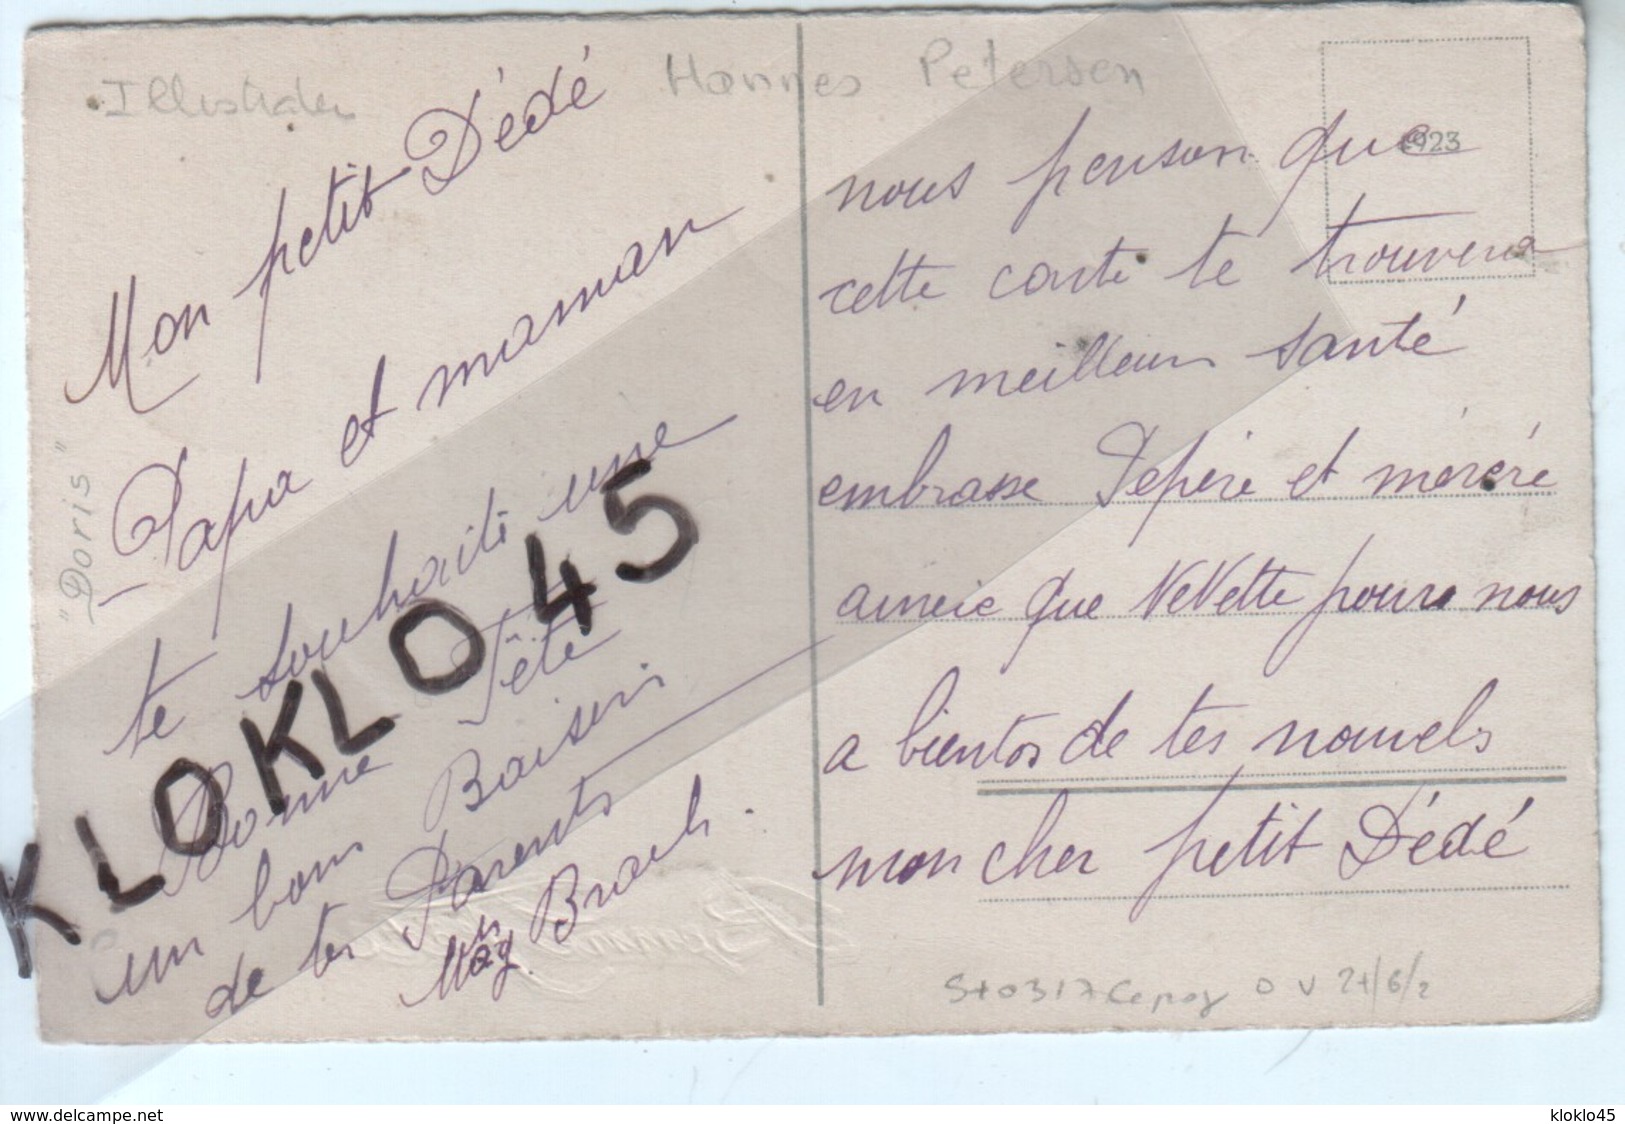 Illustrateur
Hannes Petersen
"Doris"
Mon petit Dédé
Papa et maman
te souhaite une
Bonne Fête
un bons Baisers
de tes Parents
KLOKLO45
nous penson que
1923
cette carte te trouvera
en meilleur santé
embrasse Pepère et mérère
ainsie que VeVette pour nous
a bientos de tes nouvels
mon cher petit Dédé
delcampe.net
kloklo45